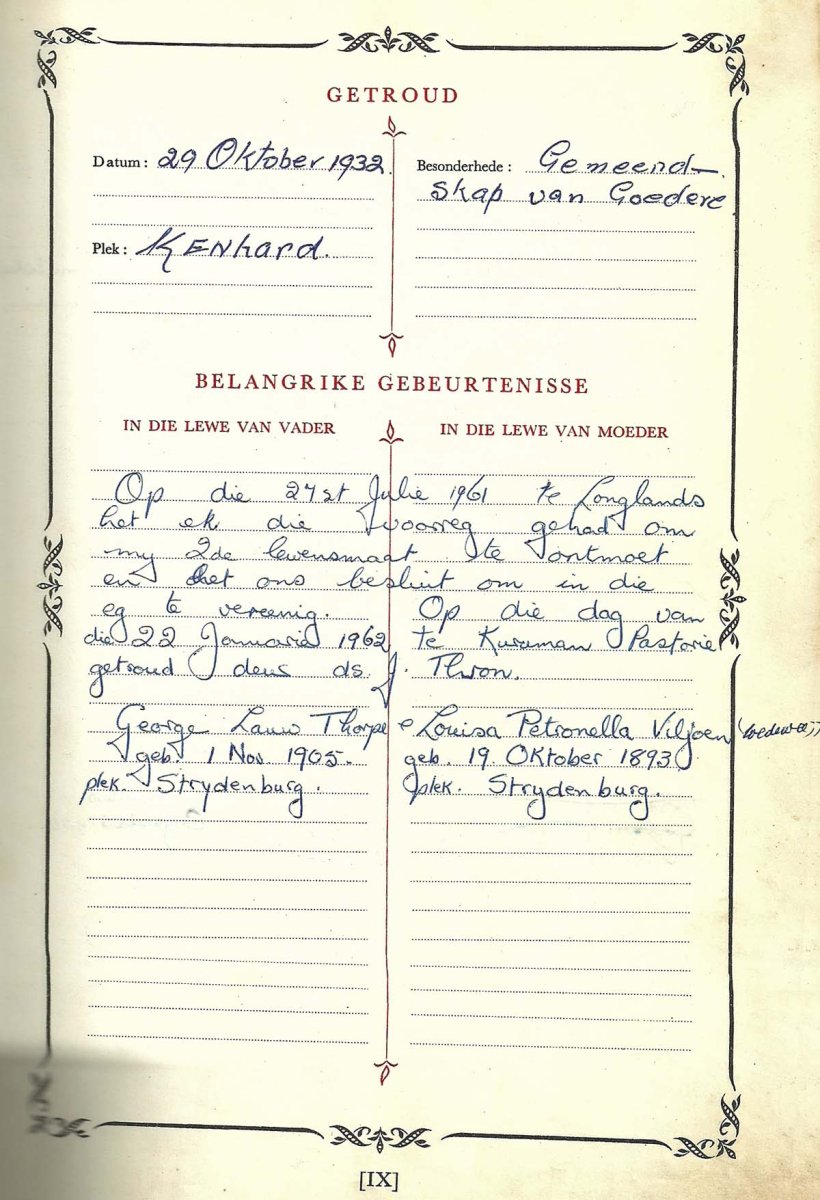 GETROUD
Datum: 29 Oktober 1932.
Plek: KENhard.
Besonderhede: Gemeend-
skap van Goedere
BELANGRIKE GEBEURTENISSE
IN DIE LEWE VAN VADER
IN DIE LEWE VAN MOEDER
Op die 27st Julie 1961 te Longlands
het ek die voorreg gehad om
my 2de lewensmaat te ontmoet
en het ons besluit om in die
eg te vereenig. Op die dag van
die 22 Januarie 1962 te Kuruman Pastorie
getroud deus ds. J. Thron.
George Lauw Thorpe e Louisa Petronella Viljoen (wedewee)
geb. 1 Nov. 1905. geb. 19 Oktober 1893
plek. Strydenburg. plek. Strydenburg.
[IX]